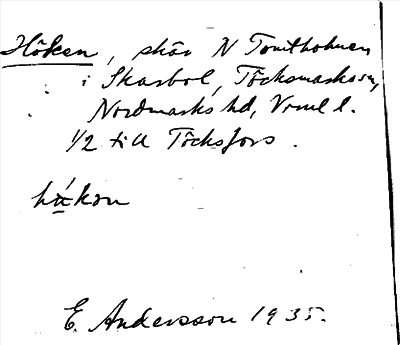 Höken, skär N Tomtholmen
i Skarbol, Töcksmarks sn,
Nordmarks hd, Vrml l.
1/2 till Töcksfors.
hǻkon
E. Andersson 1935.